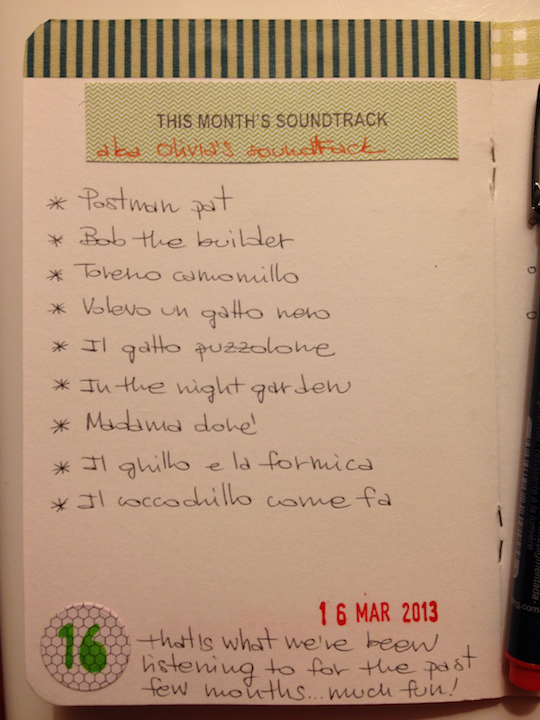 THIS MONTH'S SOUNDTRACK
aka Olivia's soundtrack
* Postman pat
* Bob the builder
* Torero camomillo
* Volevo un gatto nero
* Il gatto puzzolone
* In the night garden
* Madama doré
* Il grillo e la formica
* Il coccodrillo come fa
16 MAR 2013
16
that's what we've been
listening to for the past
few months... much fun!